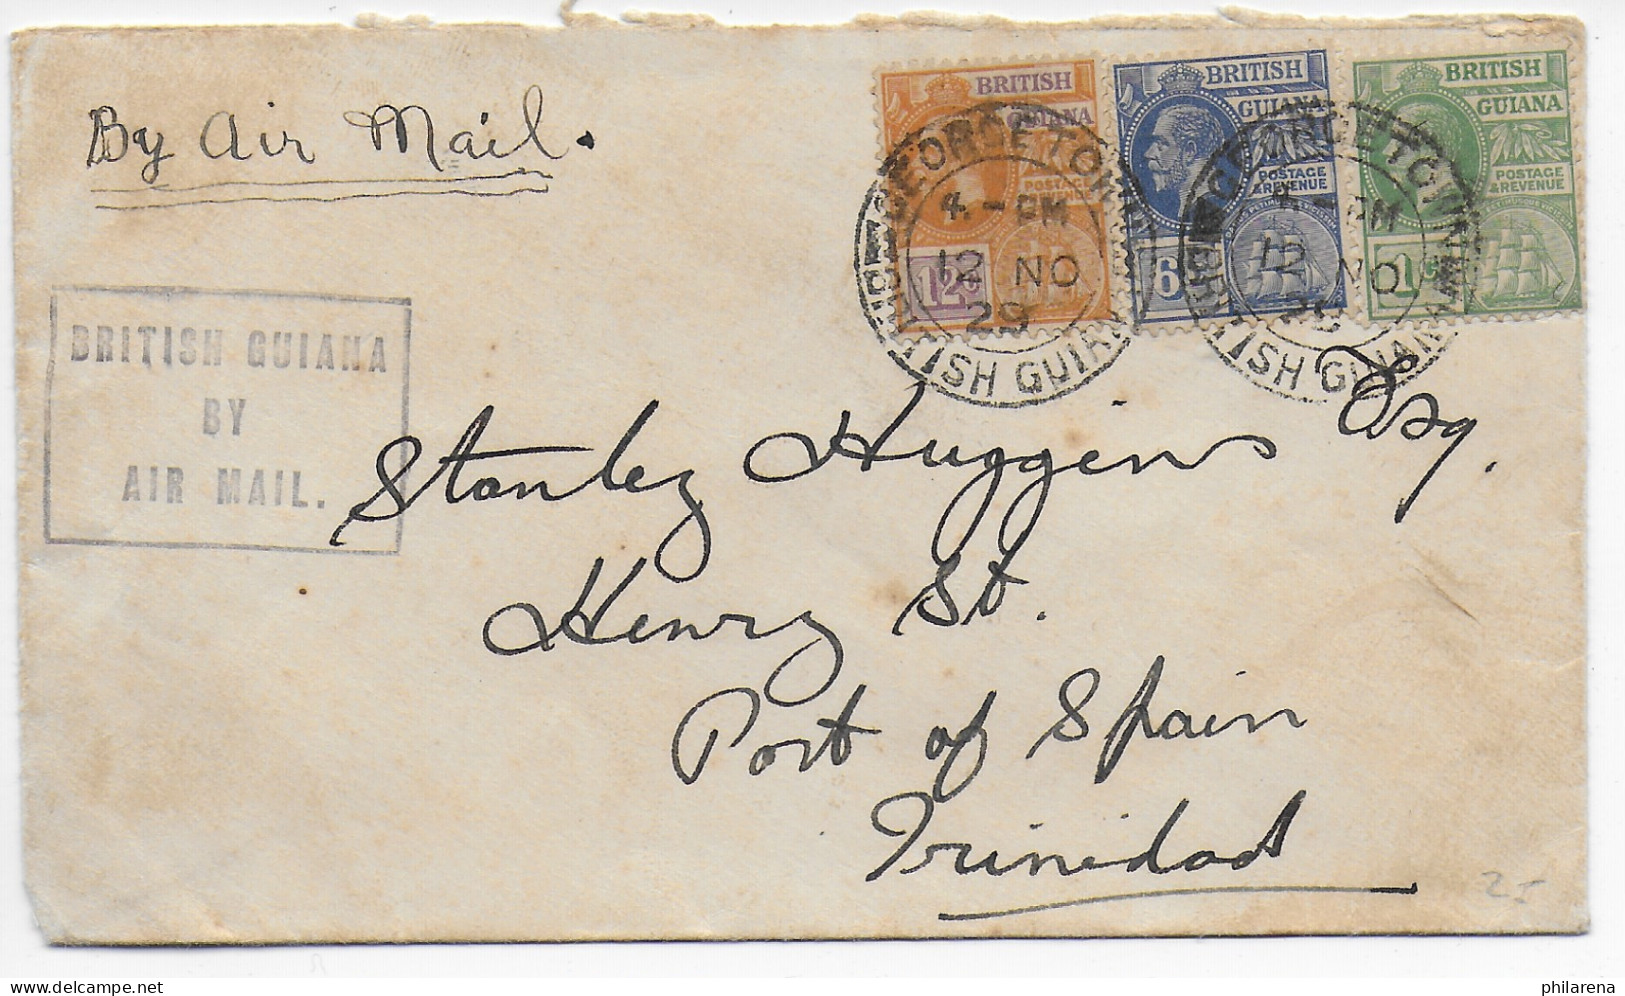 By Air Mail.
BRITISH GUIANA
BY
AIR MAIL.
BRITISH
GUIANA
POSTAGE
12c
GEORGETOWN
4 - PM
12 NO
29
BRITISH GUIANA
BRITISH
GUIANA
POSTAGE
& REVENUE
6
BRITISH
GUIANA
POSTAGE
& REVENUE
1c
GEORGETOWN
PM
12 NO
29
BRITISH GUIANA
Stanley Huggins Esq.
Henry St.
Port of Spain
Trinidad
philarena